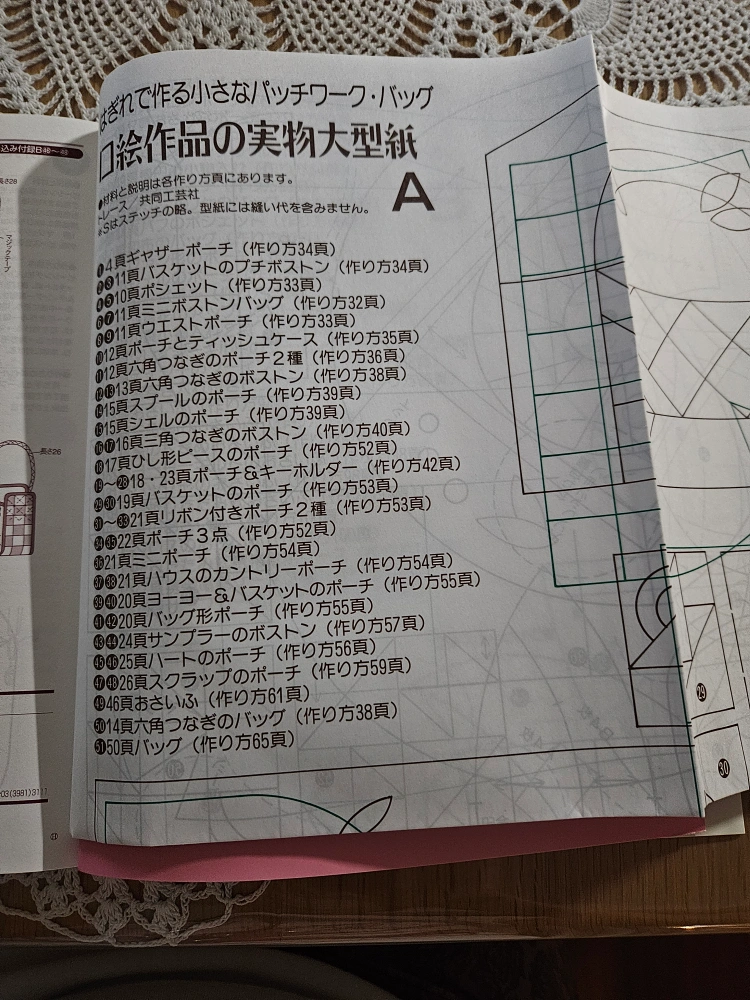 はぎれで作る小さなパッチワーク・バッグ
口絵作品の実物大型紙
A
●材料と説明は各作り方頁にあります。
トレース／共同工芸社
※Sはステッチの略。型紙には縫い代を含みません。
❶4頁ギャザーポーチ（作り方34頁）
❷❸11頁バスケットのプチボストン（作り方34頁）
❹❺10頁ポシェット（作り方33頁）
❻❼11頁ミニボストンバッグ（作り方32頁）
❽❾11頁ウエストポーチ（作り方33頁）
❿12頁ポーチとティッシュケース（作り方35頁）
⓫12頁六角つなぎのポーチ2種（作り方36頁）
⓬⓭13頁六角つなぎのボストン（作り方38頁）
⓮15頁スプールのポーチ（作り方39頁）
⓯15頁シェルのポーチ（作り方39頁）
⓰⓱16頁三角つなぎのボストン（作り方40頁）
⓲17頁ひし形ピースのポーチ（作り方52頁）
⓳〜㉘18・23頁ポーチ&キーホルダー（作り方42頁）
㉙㉚19頁バスケットのポーチ（作り方53頁）
㉛〜㉝21頁リボン付きポーチ2種（作り方53頁）
㉞㉟22頁ポーチ3点（作り方52頁）
㊱21頁ミニポーチ（作り方54頁）
㊲㊳21頁ハウスのカントリーポーチ（作り方54頁）
㊴㊵20頁ヨーヨー&バスケットのポーチ（作り方55頁）
㊶㊷20頁バッグ形ポーチ（作り方55頁）
㊸㊹24頁サンプラーのボストン（作り方57頁）
㊺㊻25頁ハートのポーチ（作り方56頁）
㊼㊽26頁スクラップのポーチ（作り方59頁）
㊾46頁おさいふ（作り方61頁）
㊿14頁六角つなぎのバッグ（作り方38頁）
51 50頁バッグ（作り方65頁）
込み付録B㊻〜㊽
長さ28
マジックテープ
長さ26
03(3981)31
㉙
㉚